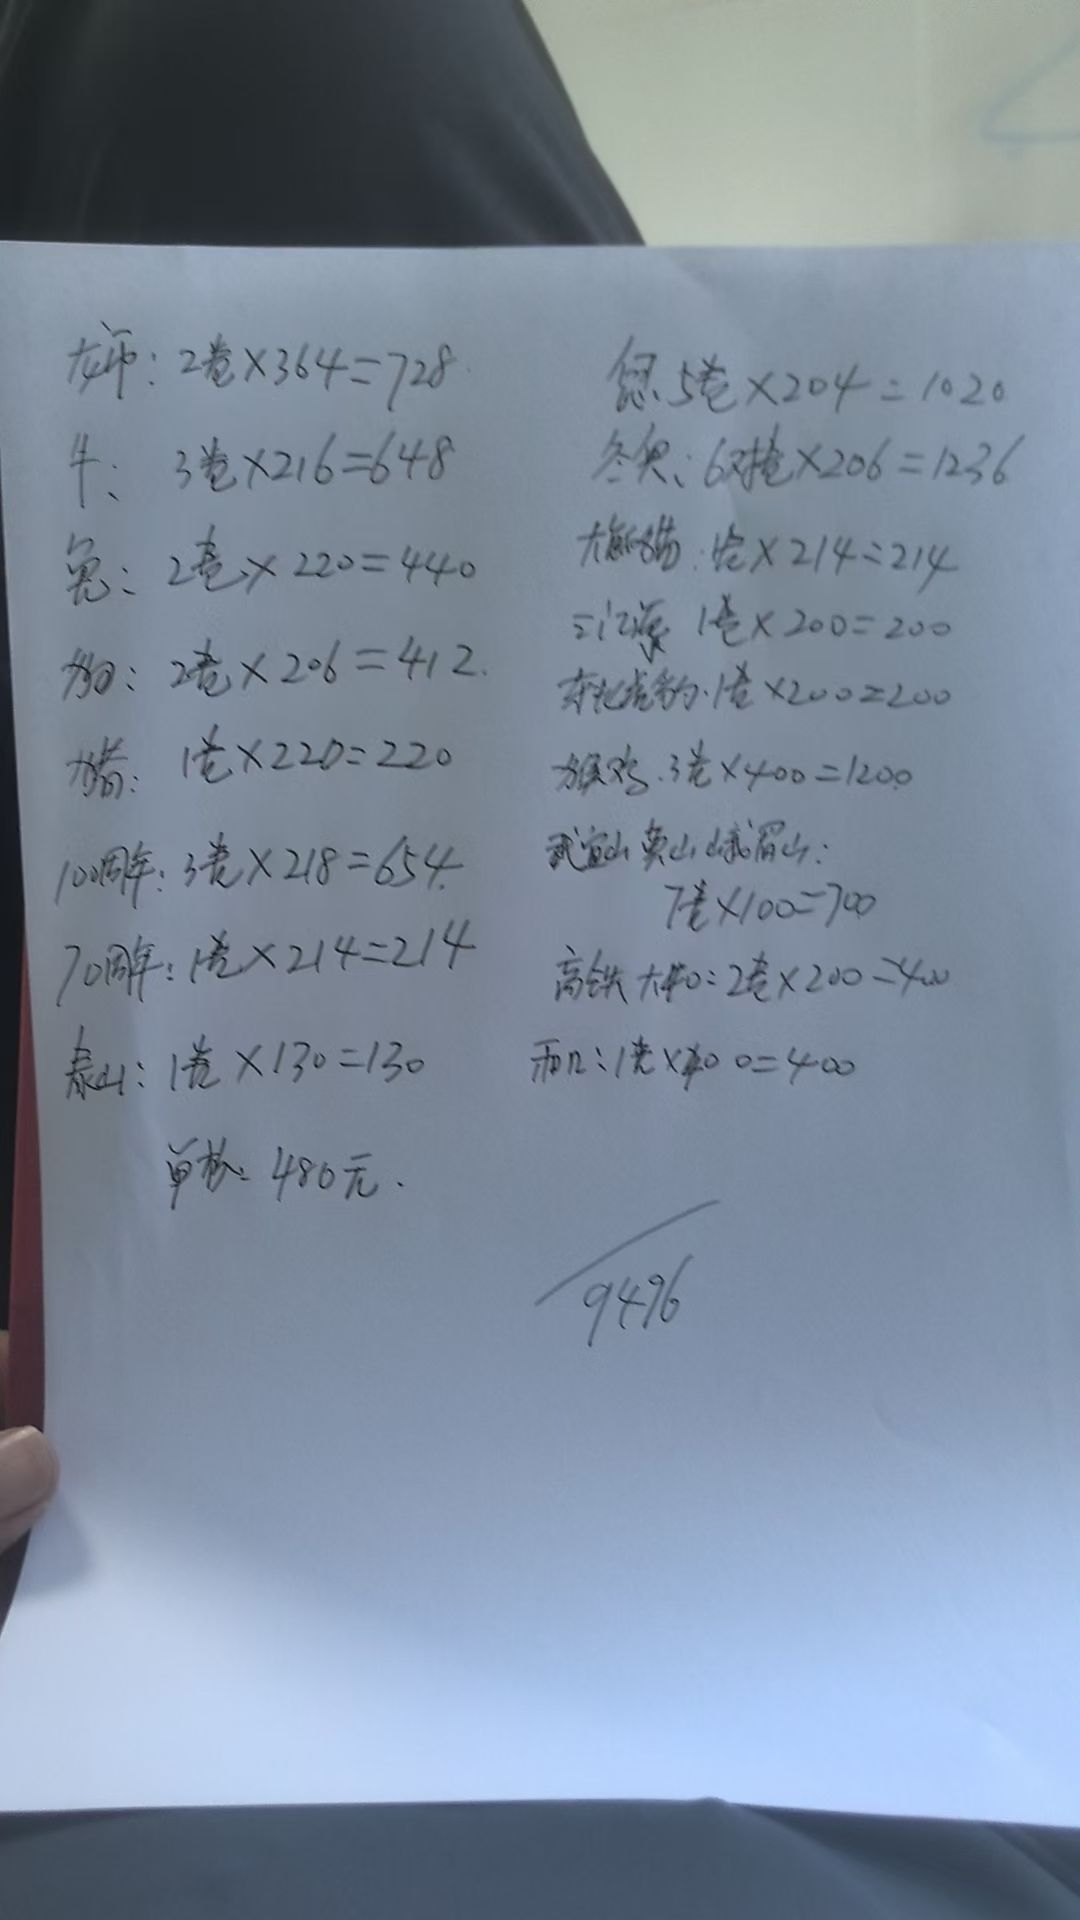 2卷×364=728
牛: 3卷×216=648
兔: 2卷×220=440
狗: 2卷×206=412.
猪: 1卷×220=220
100周年: 3卷×218=654
70周年: 1卷×214=214
泰山: 1卷×130=130
单枚: 480元.
5卷×204=1020
冬奥: 6对卷×206=1236
大熊猫: 1卷×214=214
三江源 1卷×200=200
东北虎豹. 1卷×200=200
猴鸡. 3卷×400=1200
武宜山黄山峨眉山:
7卷×100=700
高铁 大桥: 2卷×200=400
1卷×400=400
9496